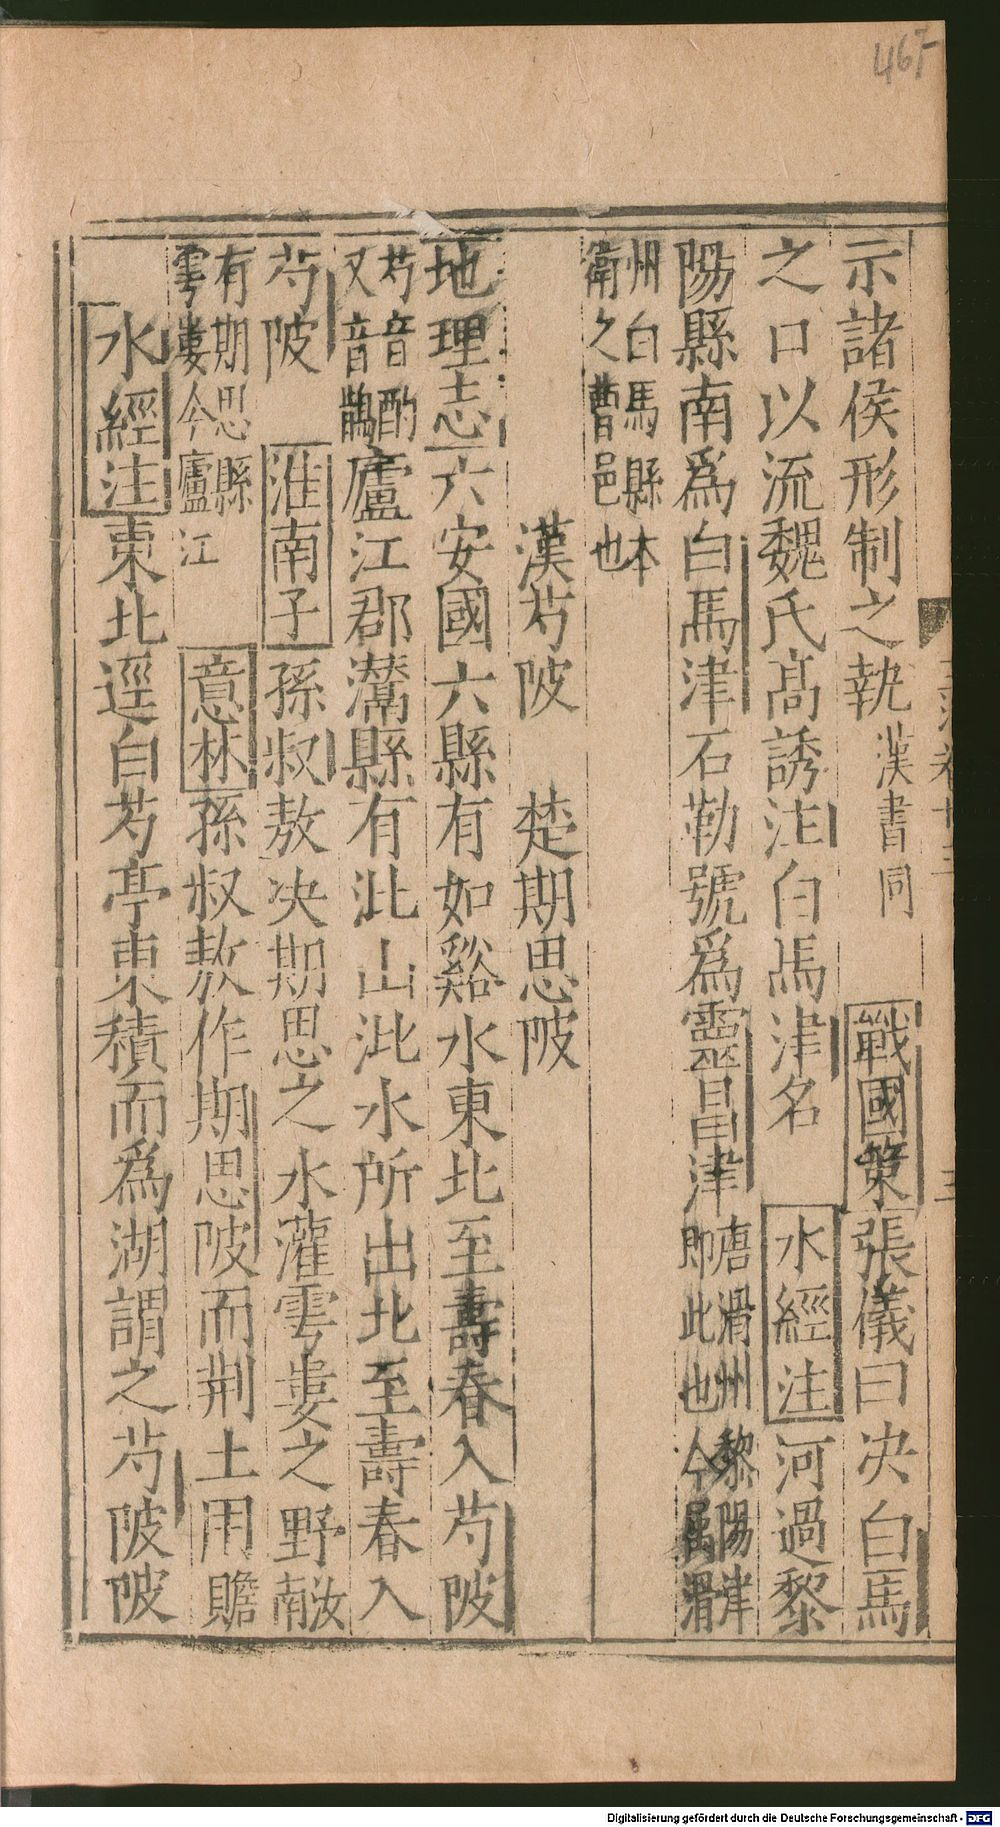 467
示諸侯形制之埶漢書同 戰國策張儀曰决白馬
之口以流魏氏高誘注白馬津名 水經注河過黎
陽縣南爲白馬津石勒號爲靈昌津唐滑州黎陽津即此也今屬滑
州白馬縣本衛之曹邑也
漢芍陂 楚期思陂
地理志六安國六縣有如谿水東北至壽春入芍陂
芍音酌又音鵲廬江郡灊縣有沘山沘水所出北至壽春入
芍陂 淮南子孫叔敖决期思之水灌雩婁之野汝南
有期思縣雩婁今廬江 意林孫叔敖作期思陂而荆土用贍
水經注東北逕白芍亭東積而爲湖謂之芍陂陂
三
Digitalisierung gefördert durch die Deutsche Forschungsgemeinschaft - DFG